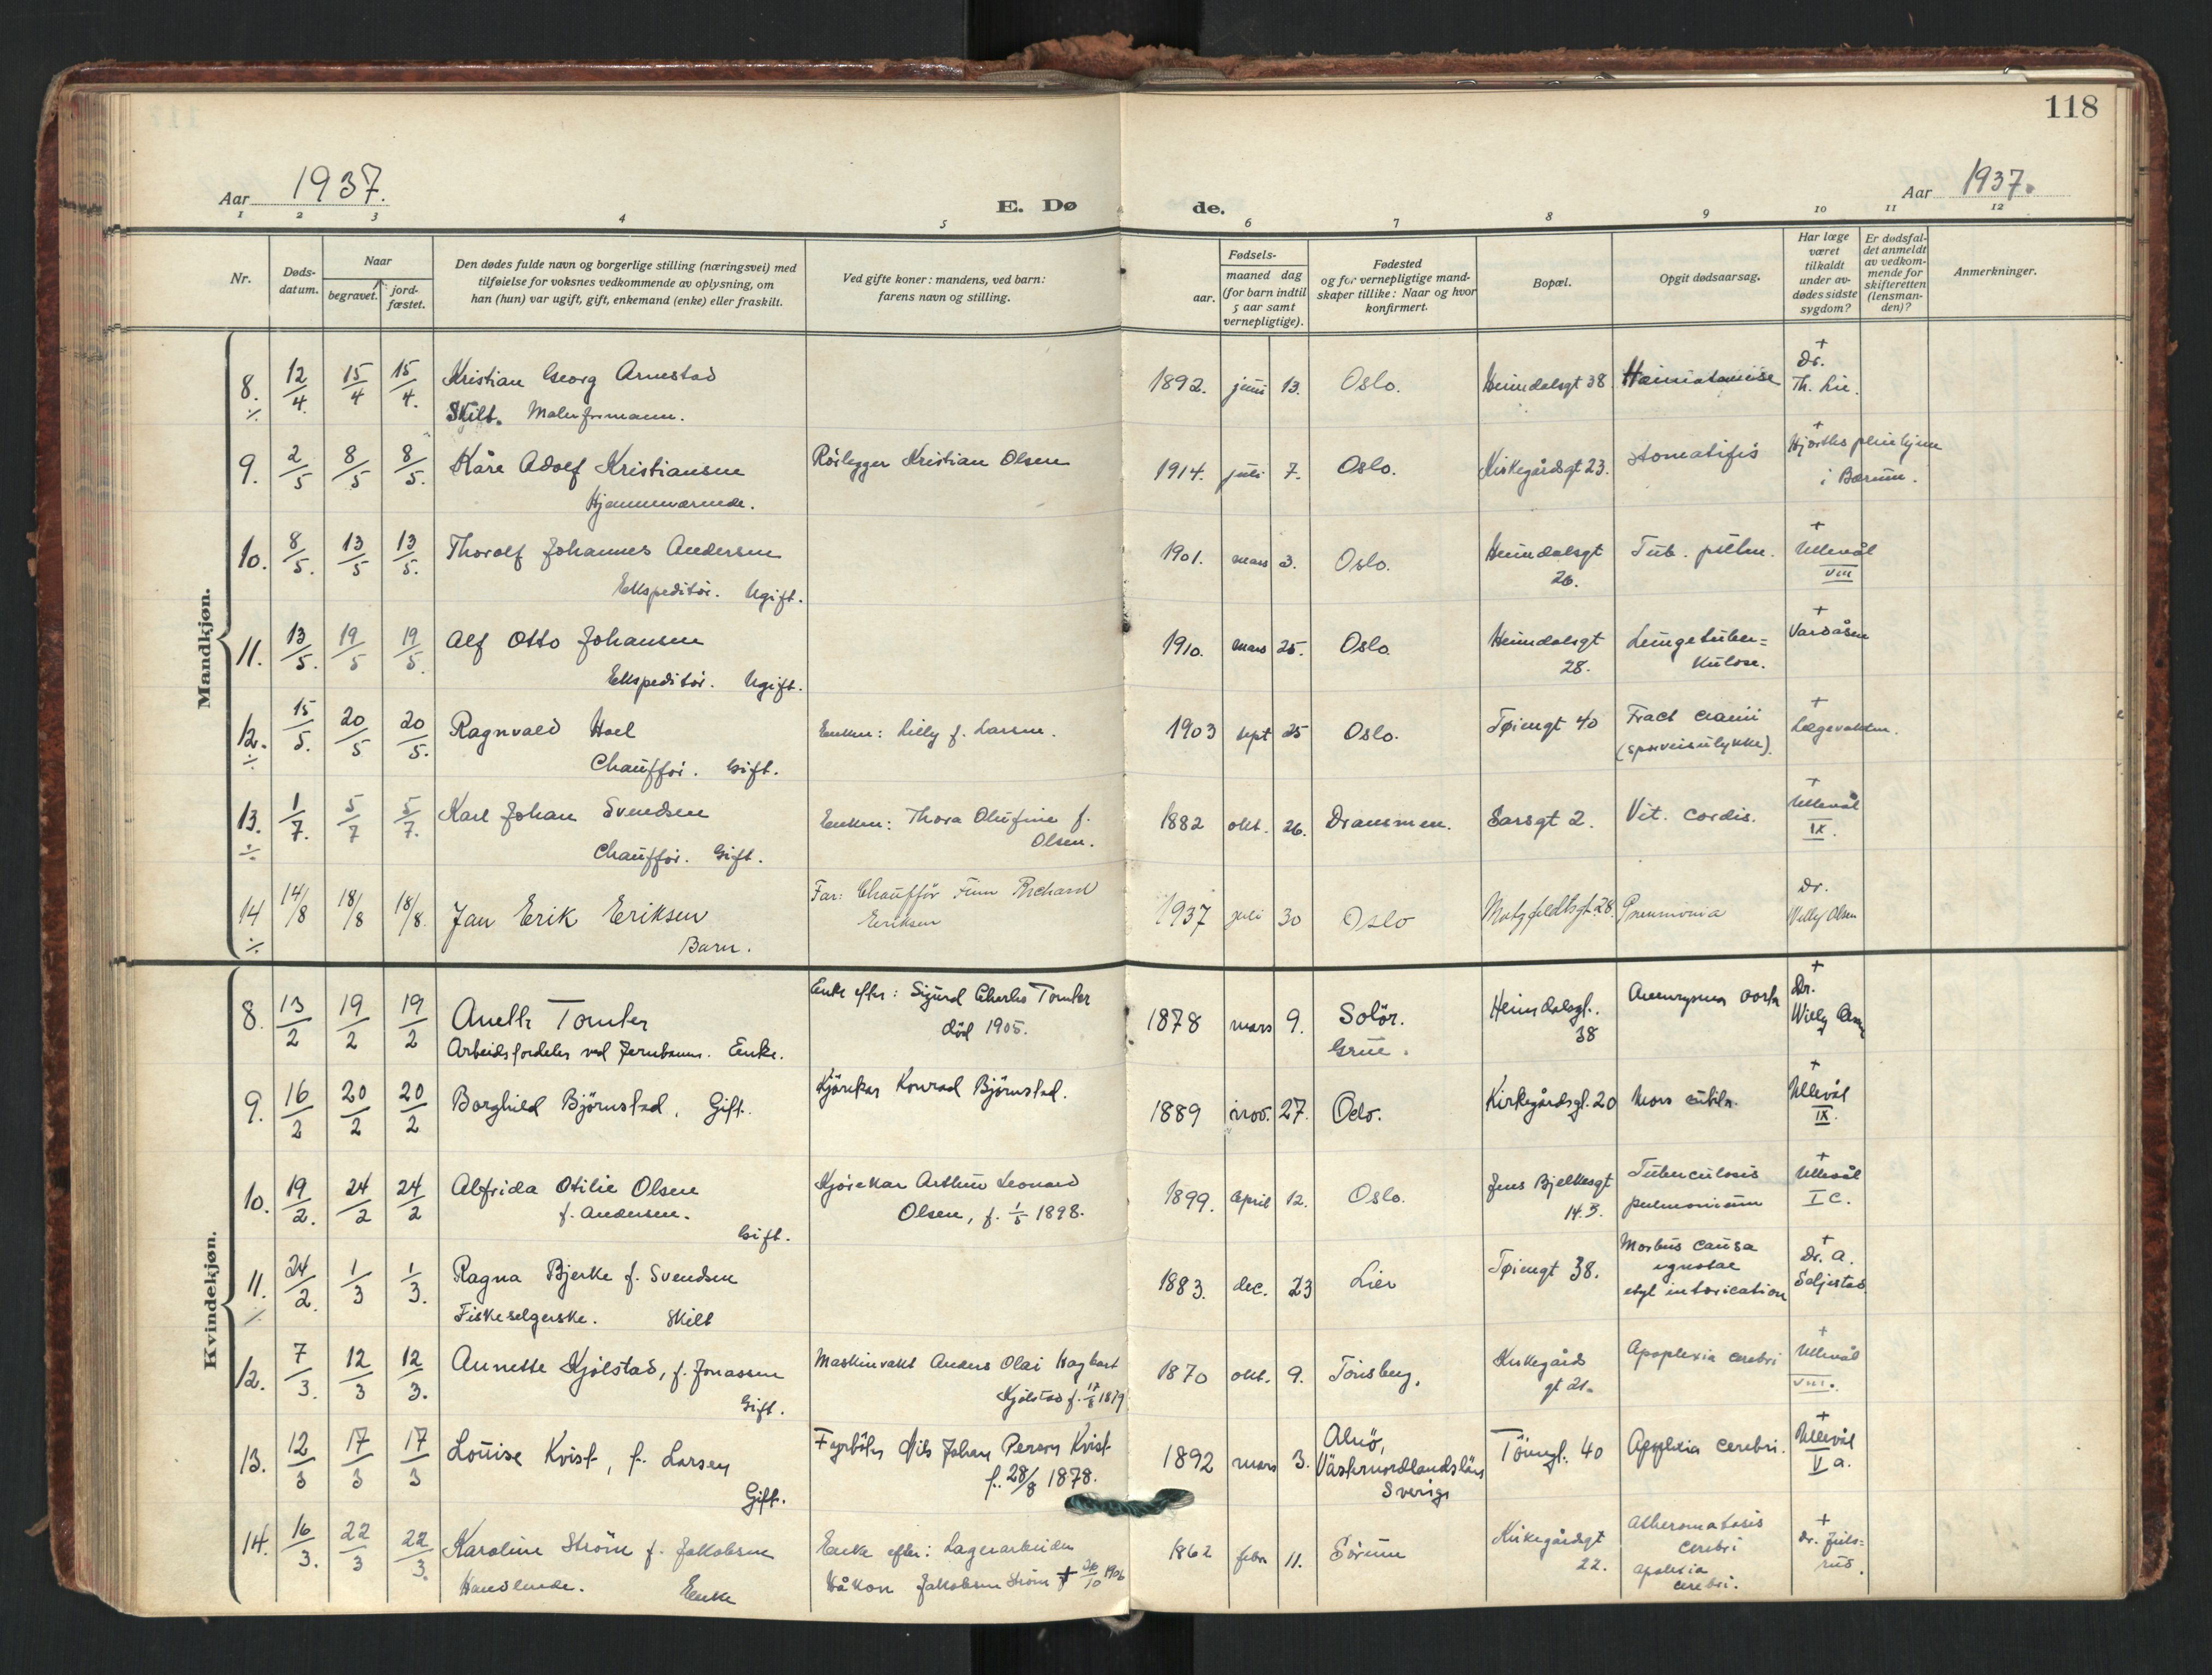 118
Aar 1937.
E. Dø
de.
Aar 1937.
1 2 3 4 5 6 7 8 9 10 11 12
Nr.
Døds-
datum.
Naar
begravet.
jord-
fæstet.
Den dødes fulde navn og borgerlige stilling (næringsvei) med
tilføielse for voksnes vedkommende av oplysning, om
han (hun) var ugift, gift, enkemand (enke) eller fraskilt.
Ved gifte koner: mandens, ved barn:
farens navn og stilling.
Fødsels-
aar.
maaned dag
(for barn indtil
5 aar samt
vernepligtige).
Fødested
og for vernepligtige mand-
skaper tillike: Naar og hvor
konfirmert.
Bopæl.
Opgit dødsaarsag.
Har læge
været
tilkaldt
under av-
dødes sidste
sygdom?
Er dødsfal-
det anmeldt
av vedkom-
mende for
skifteretten
(lensman-
den)?
Anmerkninger.
Mandkjøn.
8. 12/4. 15/4 15/4. Kristian Georg Arnestad 1892. juni 13. Oslo. Heimdalsgt 38 + Dr. Th. Lie.
÷ Skilt. Malerformann.
9. 2/5 8/5 8/5. Kåre Adolf Kristiansen Rörlegger Kristian Olsen 1914. juli 7. Oslo. Kirkegårdsgt 23. + Hjorthes pleiehjem
Hjemmeværende. i Bærum.
10. 8/5. 13/5 13/5. Thorolf Johannes Andersen 1901. mars 3. Oslo. Heimdalsgt 26. Tub. pulm. + Ullevål VIII
Ekspeditör. Ugift.
11. 13/5. 19/5 19/5. Alf Otto Johansen 1910. mars 25. Oslo. Heimdalsgt 28. Lungetuber=kulose. + Vardåsen
Ekspeditör. Ugift.
12. 15/5. 20/5 20/5. Ragnvald Hoel Enken: Lilly f. Larsen. 1903 sept 25 Oslo. Tøiengt 40 Fract cranii + Lægevakten.
÷ Chauffør. Gift. (sporveisulykke).
13. 1/7. 5/7 5/7. Karl Johan Svendsen Enken: Thora Olufine f. 1882 okt. 26. Drammen. Sarsgt 2. Vit. cordis. + Ullevål IX.
÷ Chauffør. Gift. Olsen.
14 14/8 18/8 18/8. Jan Erik Eriksen Far: Chauffør Finn Richard 1937 juli 30 Oslo Motzfeldtsgt. 28. Pneumonia Dr. Willy Olsen
÷ Barn. Eriksen
Kvindekjøn.
8. 13/2 19/2 19/2 Anette Tomter Enke efter: Sigurd Charles Tomter 1878 mars 9. Solör. Heimdalsgt. 38 Aneurysma aorta + Dr. Willy
Arbeidsfordeler ved Jernbanen. Enke. död 1905. Grue.
9. 16/2 20/2 20/2 Borghild Björnstad, Gift. Kjörekar Konrad Björnstad. 1889 nov. 27. Oslo. Kirkegårdsgt. 20 Mors subita. + Ullevål IX.
10. 19/2. 24/2 24/2 Alfrida Otilie Olsen Kjörekar Arthur Leonard 1899. april 12. Oslo. Jens Bjelkesgt Tuberculosis + Ullevål
f. Andersen. Olsen, f. 1/5 1898. 14.3. pulmonium I C.
Gift.
11. 24/2. 1/3 1/3. Ragna Bjerke f. Svendsen 1883. dec. 23 Lier Tøiengt 38. Morbus causa + Dr. A.
÷ Fiskeselgerske. Skilt ignotae Saljestad
etyl intoxication
12. 7/3. 12/3 12/3. Annette Kjölstad, f. Jonassen Maskinvakt Anders Olai Hagbart 1870 okt. 9. Tönsberg. Kirkegårds Apoplexia cerebri + Ullevål
Gift. Kjölstad f. 1879 gt 21. VIII.
13. 12/3 17/3 17/3 Louise Kvist, f. Larsen Fyrböter Nils Johan Person Kvist 1892 mars 3. Alnö, Töiengt. 40 Apoplexia cerebri. + Ullevål
Gift. f. 28/8 1878. Västernordlandslän V a.
Sverige
14. 16/3. 22/3 22/3. Karoline Ström f. Jakobsen Enke efter: Lagerarbeider 1862 febr 11. Sörum Kirkegårdsgt Atheromatosis + Dr. Juls=
Handlende. Enke Håkon Jakobsen Ström † 26/10 1906 22. cerebri rud.
apoplexia
cerebri.